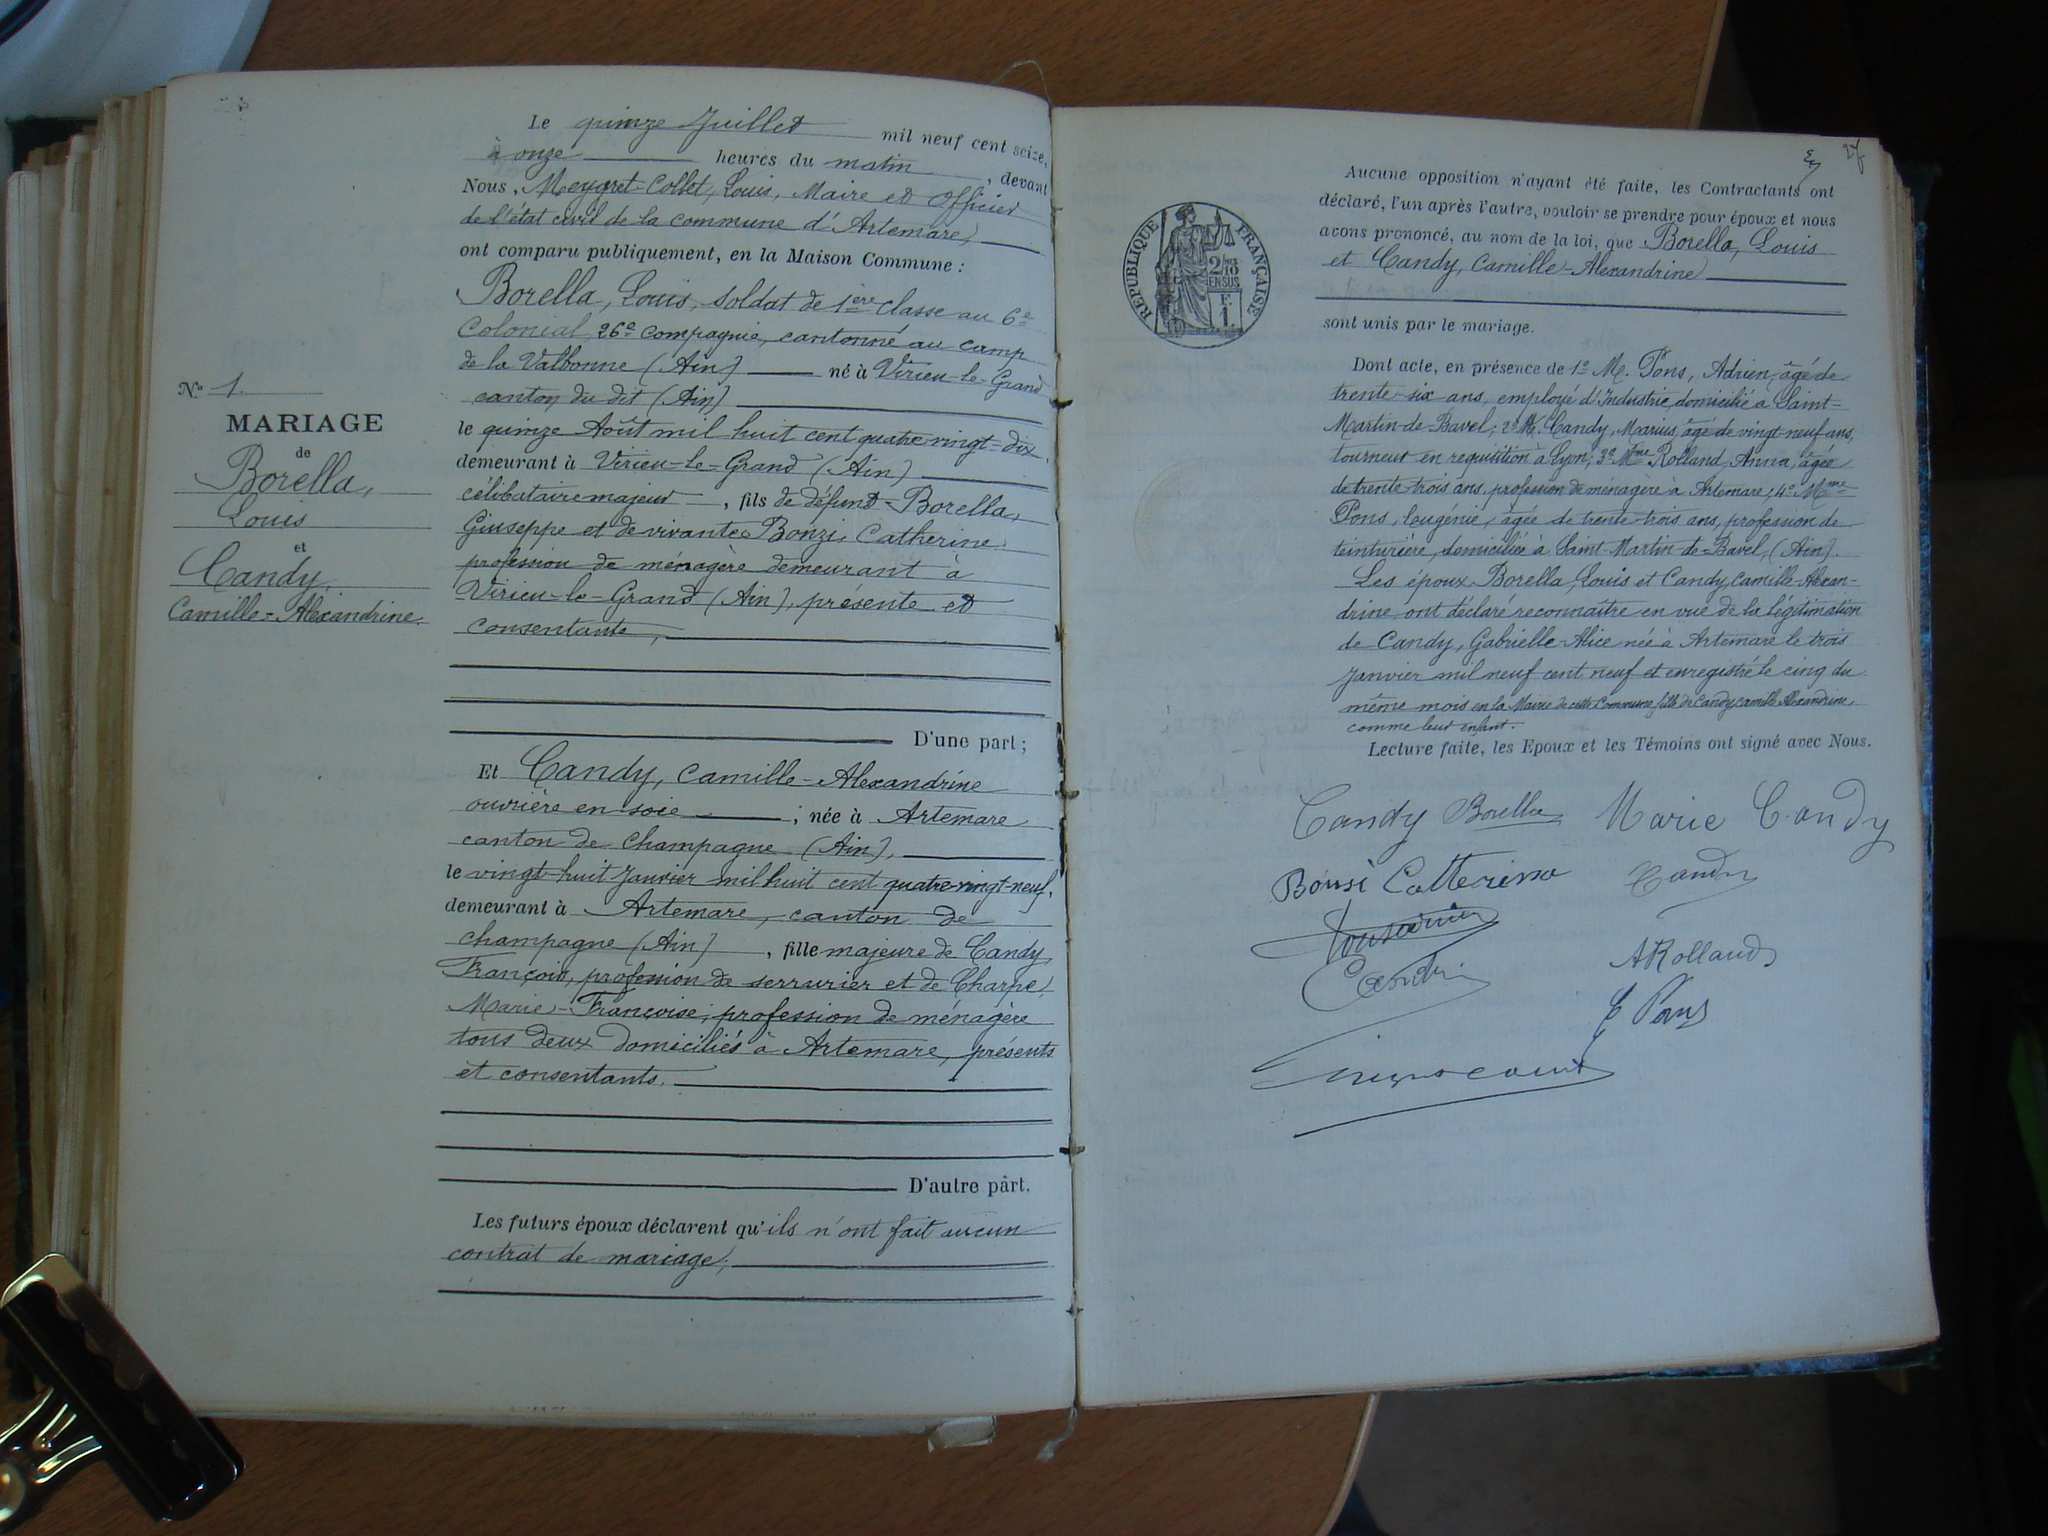 N° 1.
MARIAGE
de
Borella,
Louis
et
Candy,
Camille=Alexandrine.
Le quinze Juillet mil neuf cent seize,
à onze heures du matin, devant
Nous, Meygret-Collet, Louis, Maire et Officier
de l'état civil de la commune d'Artemare,
ont comparu publiquement, en la Maison Commune :
Borella, Louis, soldat de 1ère classe au 6e
Colonial 26e Compagnie, cantonné au camp
de la Valbonne (Ain) né à Virieu-le-Grand
canton du dit (Ain)
le quinze Août mil huit cent quatre vingt=dix
demeurant à Virieu-le-Grand (Ain)
célibataire majeur, fils de défunt Borella,
Giuseppe et de vivante Bonzi Catherine
profession de ménagère demeurant à
Virieu-le-Grand (Ain), présente et
consentante,
D'une part ;
Et Candy, Camille-Alexandrine
ouvrière en soie ; née à Artemare
canton de Champagne (Ain),
le vingt-huit Janvier mil huit cent quatre-vingt-neuf,
demeurant à Artemare, canton de
Champagne (Ain), fille majeure de Candy
François, profession de serrurier et de Charpe,
Marie-Françoise, profession de ménagère
tous deux domiciliés à Artemare, présents
et consentants.
D'autre part.
Les futurs époux déclarent qu'ils n'ont fait aucun
contrat de mariage,
27
RÉPUBLIQUE FRANÇAISE
2/10
EN SUS
F.
1.
Aucune opposition n'ayant été faite, les Contractants ont
déclaré, l'un après l'autre, vouloir se prendre pour époux et nous
avons prononcé, au nom de la loi, que Borella, Louis
et Candy, Camille-Alexandrine
sont unis par le mariage.
Dont acte, en présence de 1° M. Pons, Adrien, âgé de
trente-six ans, employé d'Industrie, domicilié à Saint=
Martin-de-Bavel ; 2° M. Candy, Marius, âgé de vingt-neuf ans,
tourneur en requisition à Lyon ; 3° Mme Rolland, Anna, âgée
de trente-trois ans, profession de ménagère à Artemare ; 4° Mme
Pons, Eugénie, âgée de trente-trois ans, profession de
teinturière, domiciliée à Saint-Martin-de-Bavel, (Ain).
Les époux Borella, Louis et Candy, Camille-Alexan-
drine ont déclaré reconnaître en vue de la légitimation
de Candy, Gabrielle-Alice née à Artemare le trois
janvier mil neuf cent neuf et enregistré le cinq du
même mois en la Mairie de cette Commune, fille de Candy Camille Alexandrine,
comme leur enfant.
Lecture faite, les Epoux et les Témoins ont signé avec Nous.
Candy Borella Marie Candy
Bonsi Catterina Candy
ARolland
E Pons